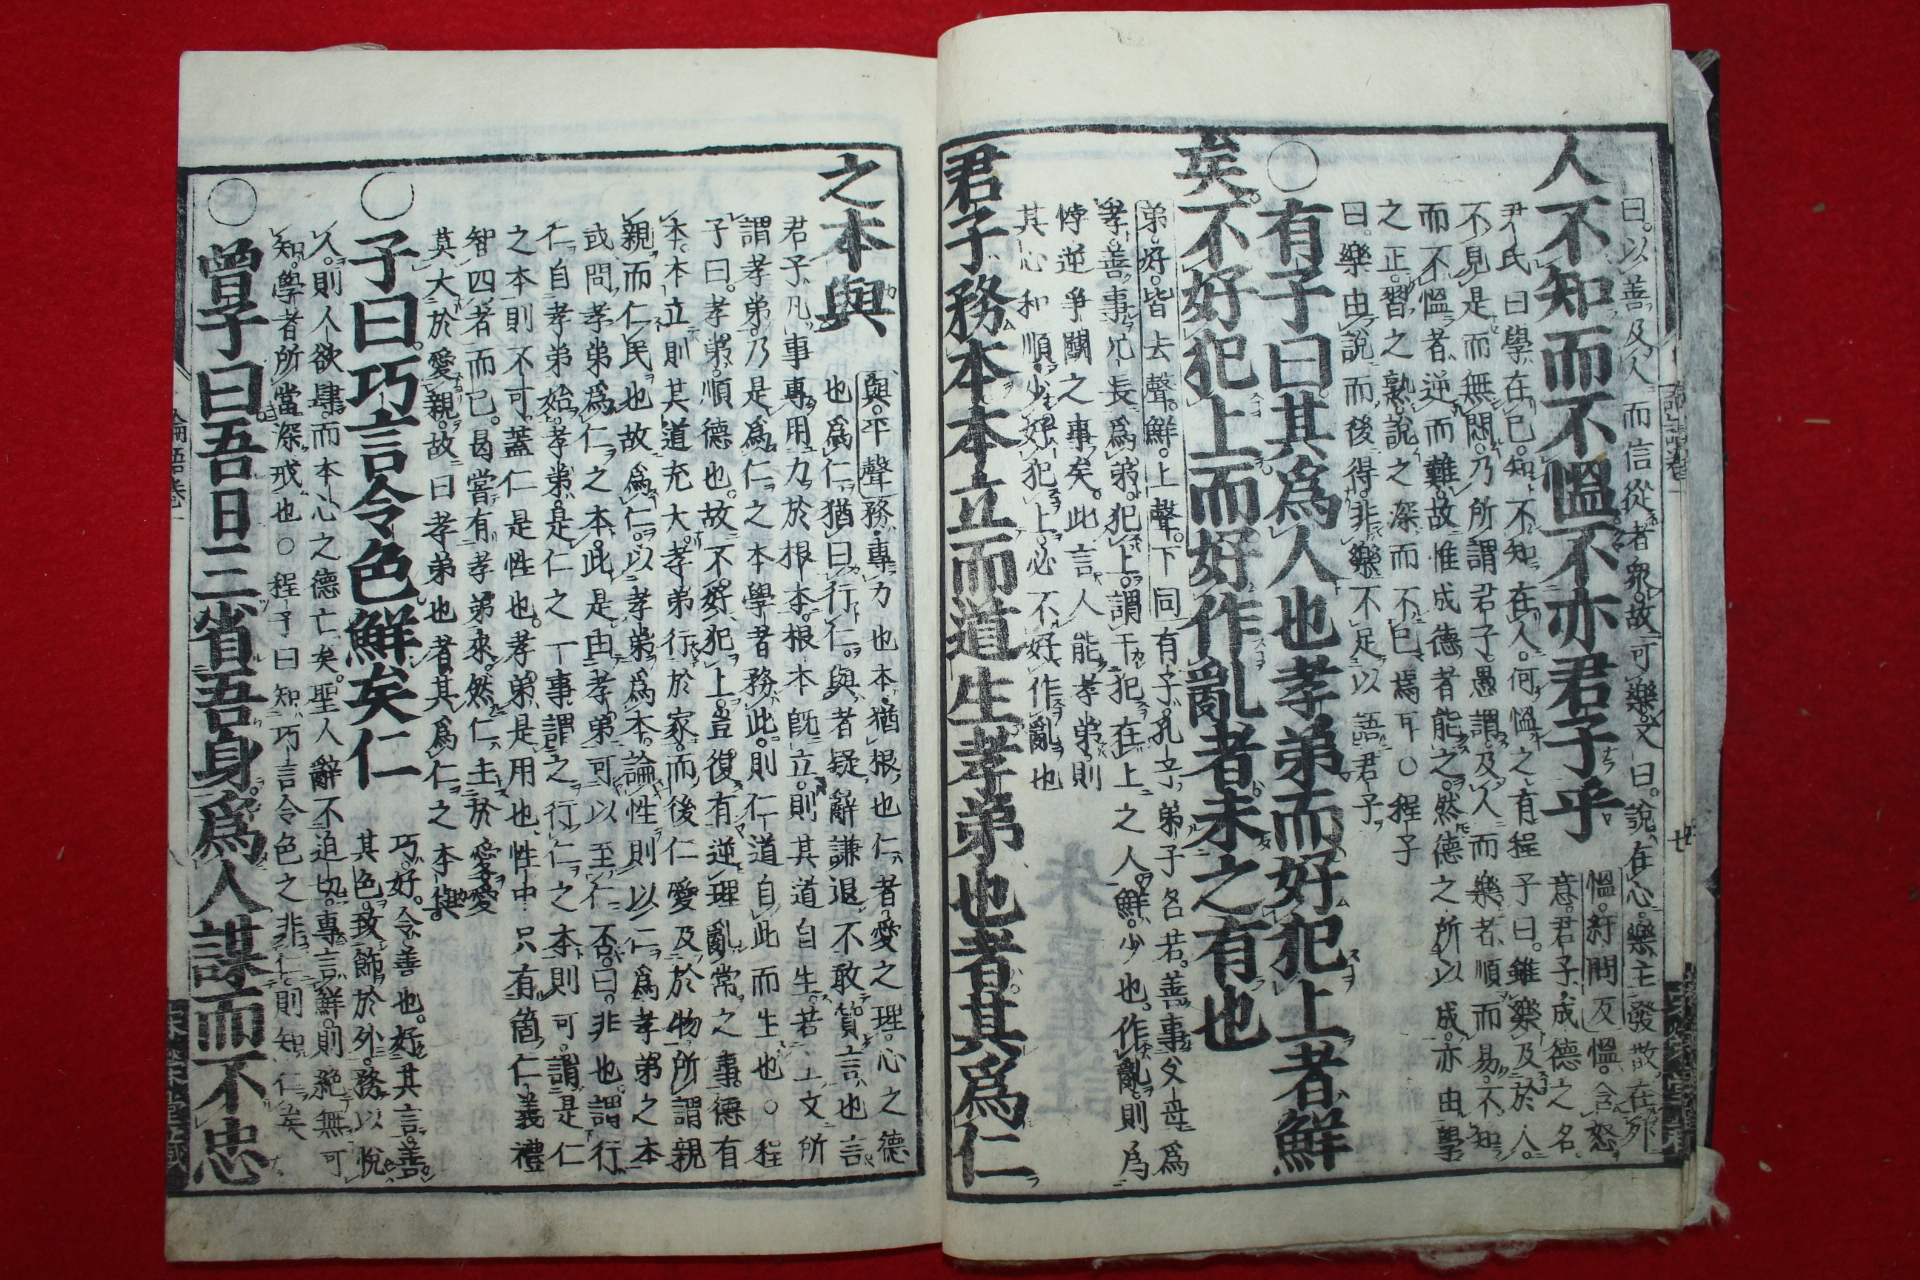 曰。以善及人而信從者衆。故可樂。又曰。說在心。樂主發散在外
人不知而不慍不亦君子乎
慍。紆問反。慍。含怒
意。君子。成德之名。
尹氏曰學在已。知不知在人。何慍之有程子曰。雖樂及於人。
不見是而無悶。乃所謂君子。愚謂及人而樂者。順而易。不知
而不慍者。逆而難。故惟成德者能之。然德之所以成。亦由學
之正。習之熟。說之深。而不已焉耳○程子
曰。樂由說而後得。非樂不足以語君子
○有子曰其爲人也孝弟而好犯上者鮮
矣。不好犯上而好作亂者未之有也
弟。好。皆去聲。鮮。上聲。下同有子。孔子弟子名若。善事父母爲
孝。善事兄長爲弟。犯上。謂干犯在上之人鮮。少也。作亂。則爲
悖逆爭鬬之事矣。此言人能孝弟則
其心和順。少好犯上。必不好作亂也
君子務本本立而道生孝弟也者其爲仁
之本與
與。平聲務。專力也本。猶根也仁者愛之理。心之德
也爲仁。猶曰行仁。與者疑辭謙退不敢質言也言
君子凡事專用力於根本。根本既立。則其道自生。若上文所
謂孝弟。乃是爲仁之本學者務此。則仁道自此而生也。○程
子曰。孝弟。順德也。故不好犯上。豈復有逆理亂常之事德有
本。本立則其道充大。孝弟行於家。而後仁愛及於物。所謂親
親而仁民也故爲仁。以孝弟爲本。論性則以仁爲孝弟之本
或問孝弟爲仁之本。此是由孝弟可以至仁否。曰。非也。謂行
仁。自孝弟始。孝弟。是仁之一事。謂之行仁之本則可。謂是仁
之本則不可。蓋仁是性也。孝弟是用也。性中只有箇仁義禮
智四者而已。曷嘗有孝弟來。然仁主於愛愛
莫大於愛親。故曰孝弟也者其爲仁之本與。
○子曰。巧言令色鮮矣仁
巧。好。令。善也。好其言。善
其色。致飾於外。務以悅
人。則人欲肆。而本心之德亡矣。聖人辭不迫切。專言鮮。則絕無可
知。學者所當深戒也。○程子曰知巧言令色之非仁。則知仁矣
○曾子曰吾日三省吾身爲人謀而不忠